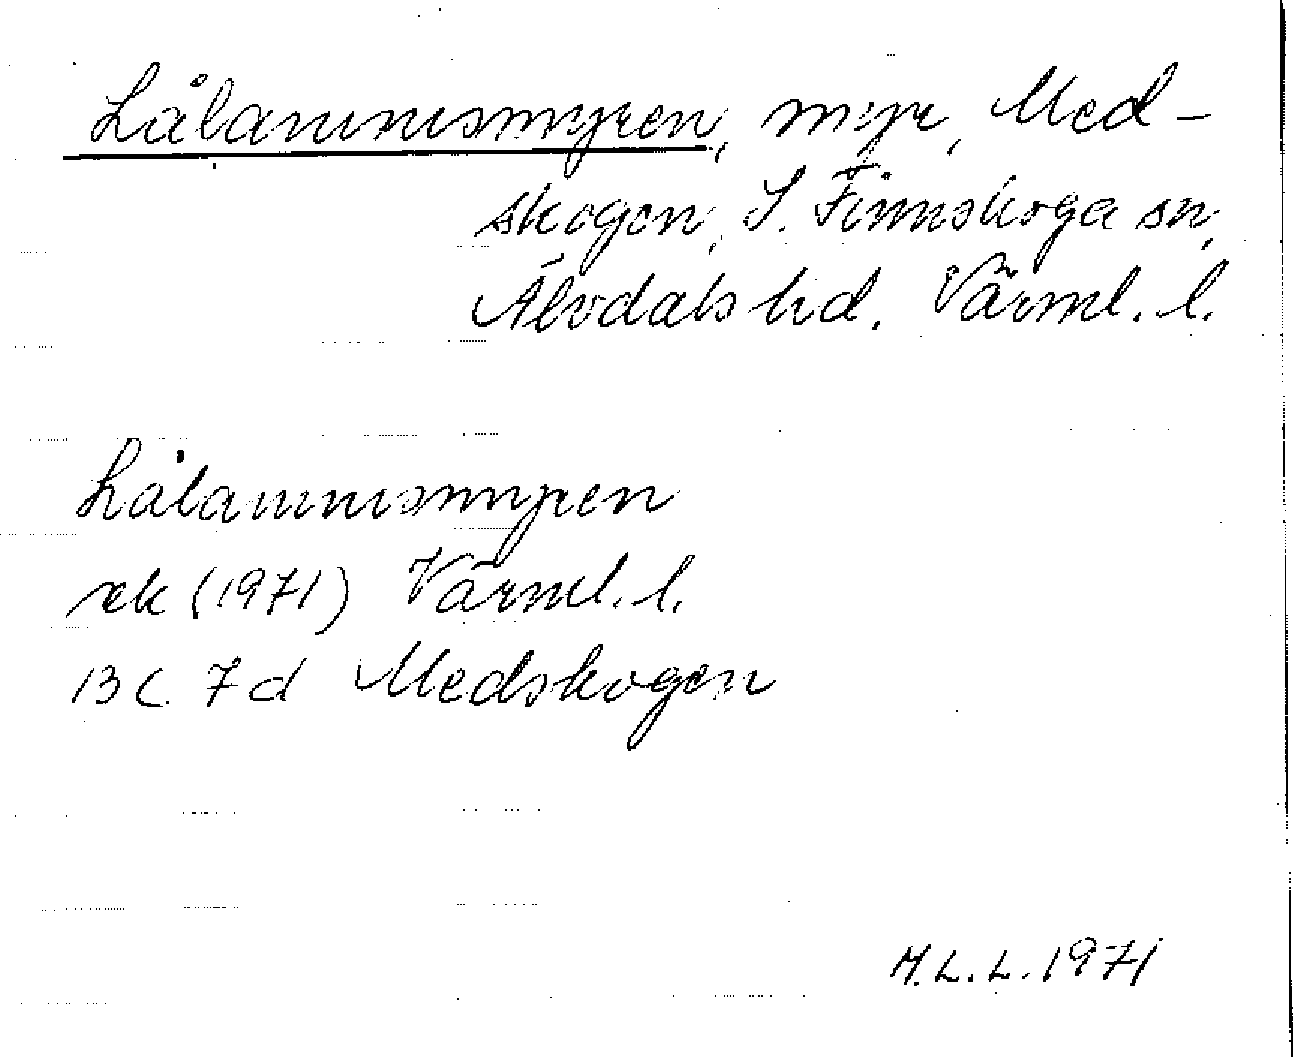 Lålammsmyren, myr, Med-
skogen, S. Finnskoga sn,
Älvdals hd. Värml. l.
Lålammsmyren
rek (1971) Värml. l.
13 C 7d Medskogen
M.L.L. 1971